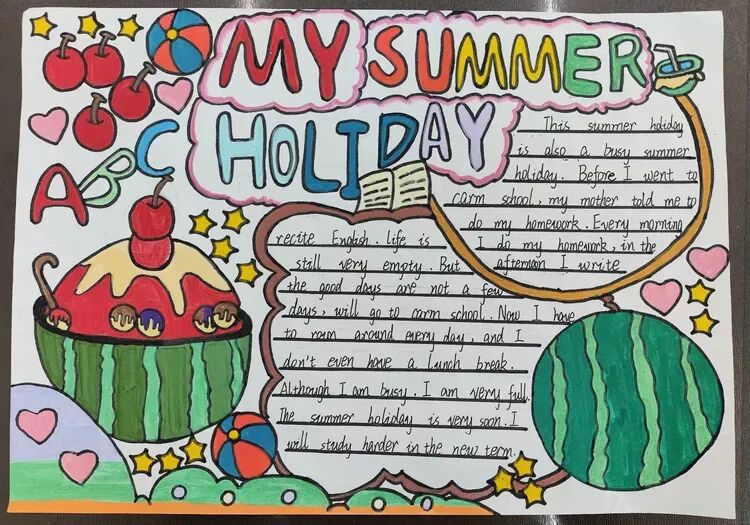 MY SUMMER
HOLIDAY
ABC
This summer holiday
is also a busy summer
holiday. Before I went to
carm school, my mother told me to
do my homework. Every morning
I do my homework, in the
afternoon I write
recite English. life is
still very empty. But
the good days are not a few
days, will go to carm school. Now I have
to roam around every day, and I
don't even have a lunch break.
Although I am busy. I am very full.
The summer holiday is very soon. I
will study harder in the new term.